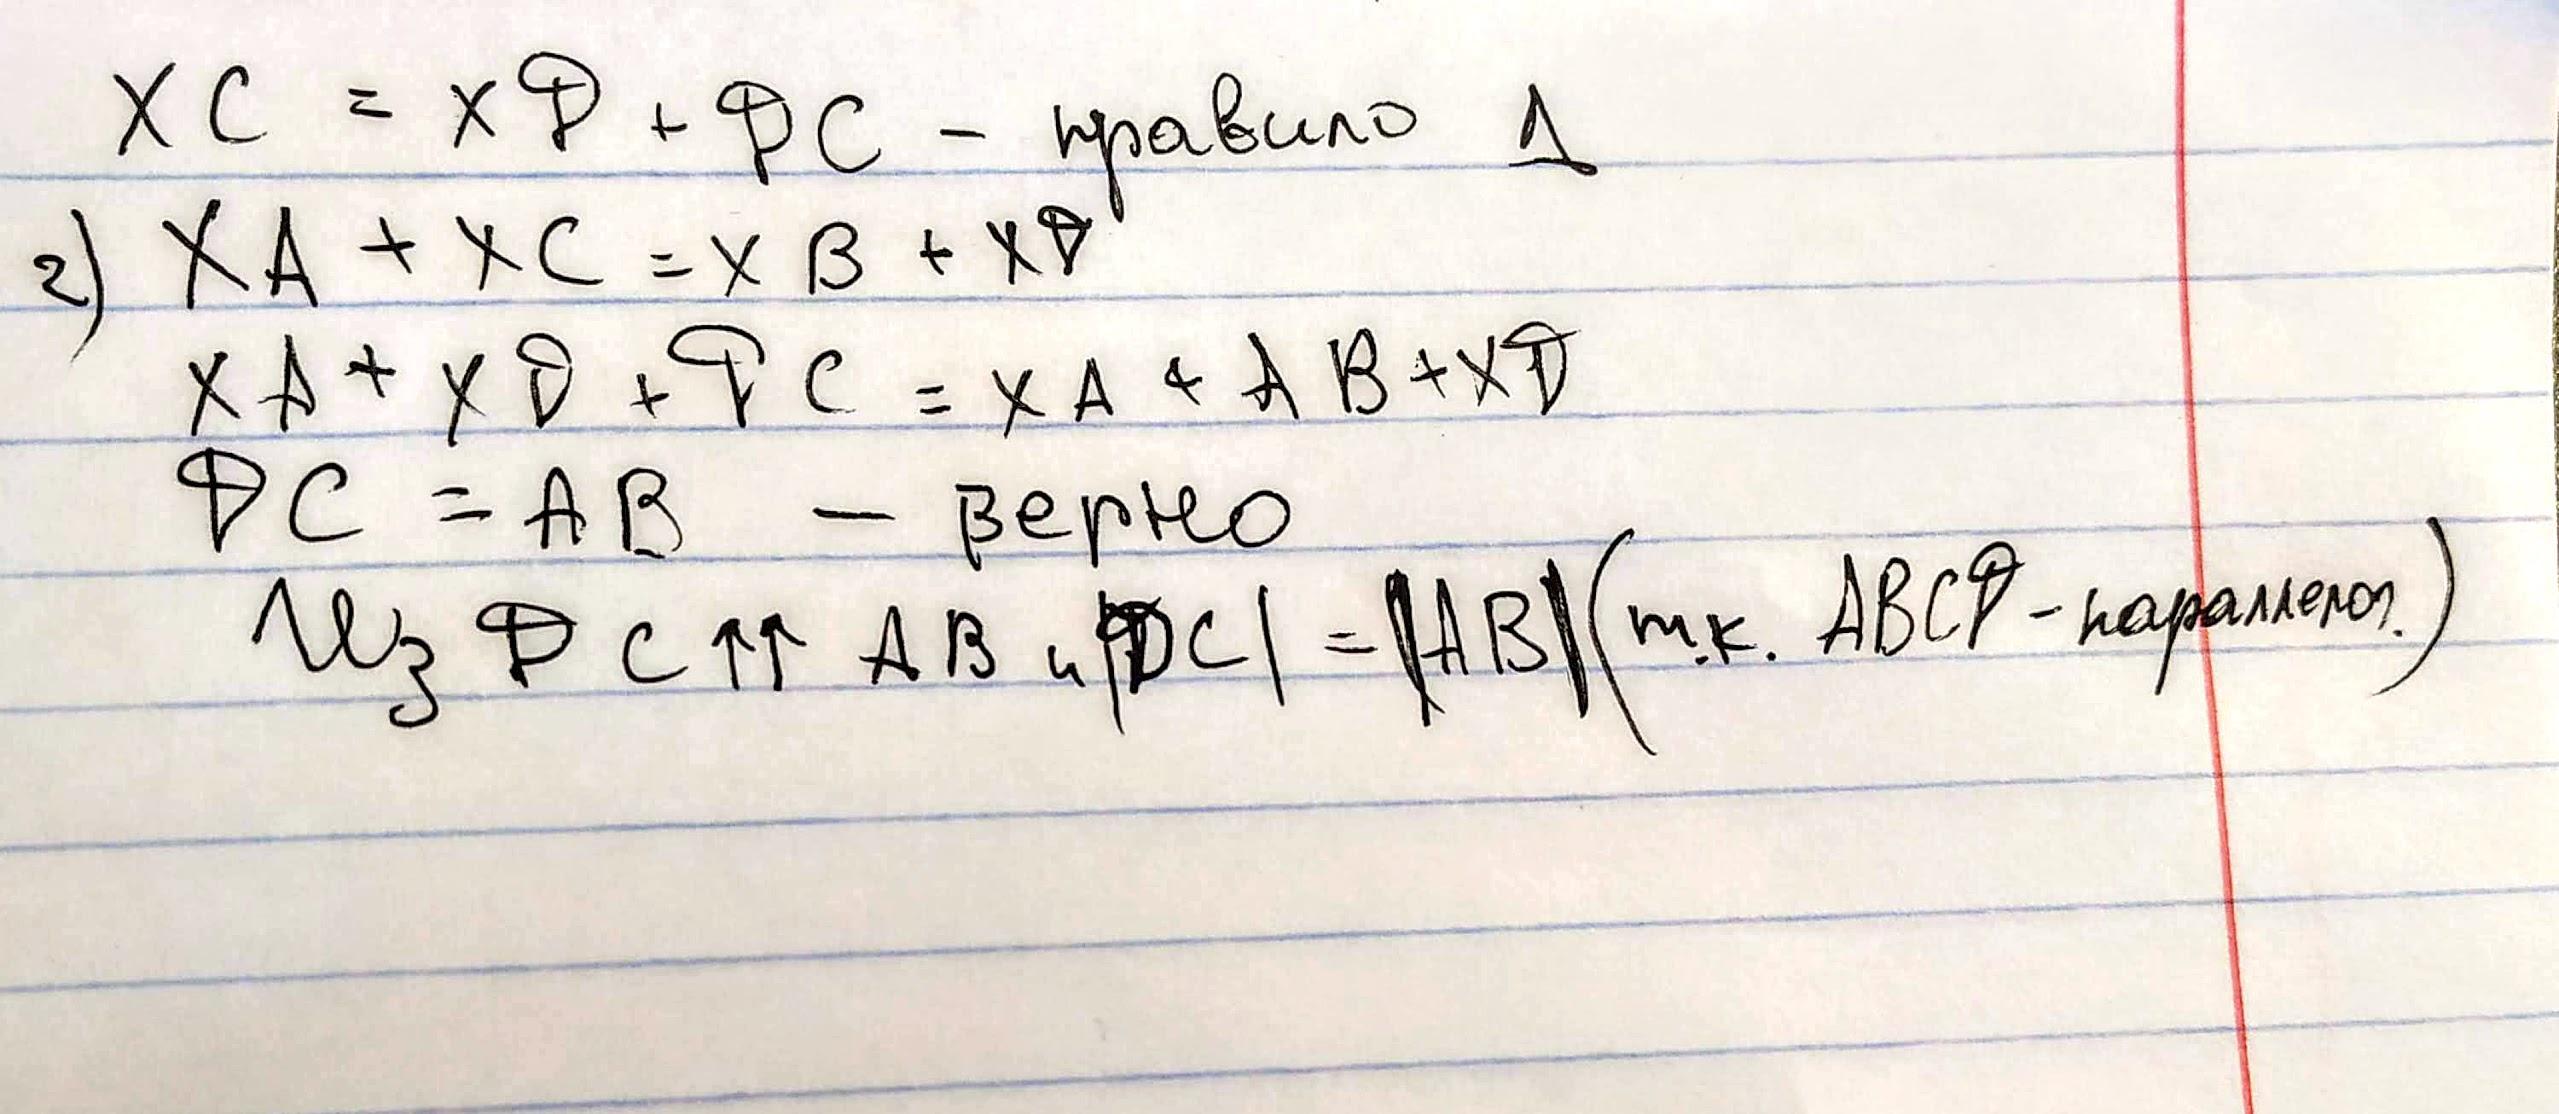 XC = XD + DC - правило 1
2) XA + XC = XB + XD
XA + XD + DC = XA + AB + XD
DC = AB — верно
Из DC ↑↑ AB и |DC| = |AB| (т.к. ABCD - параллелог.)